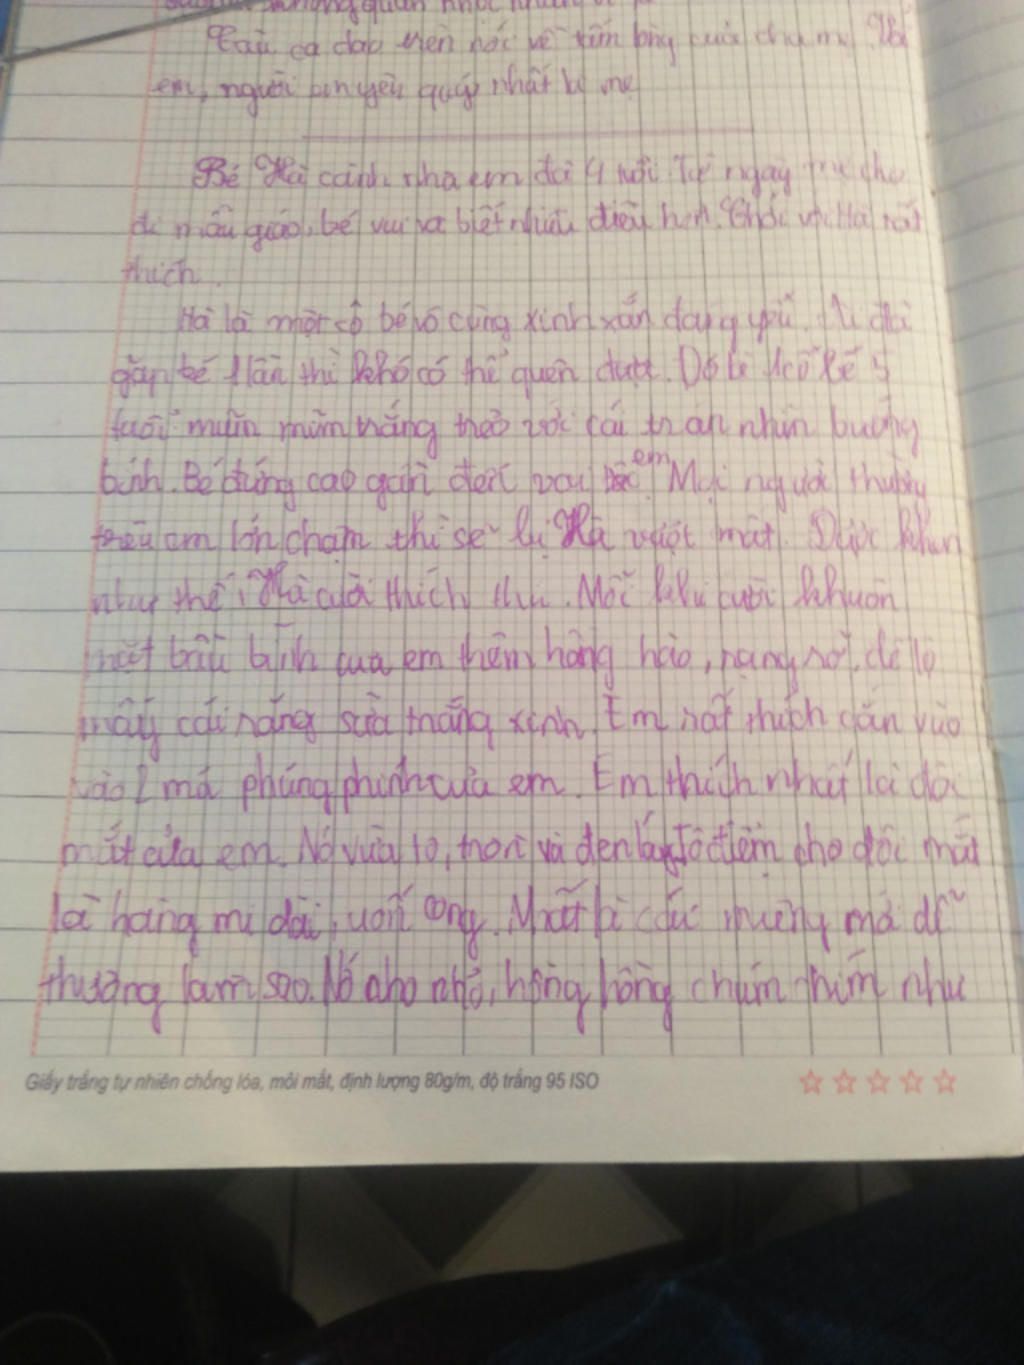 Câu ca dao trên nói về tấm lòng của cha mẹ. Với
em, người em yêu quý nhất là mẹ
Bé Hà cạnh nhà em đã 4 tuổi. Từ ngày mẹ cho
đi mẫu giáo, bé vui và biết nhiều điều hơn. Chơi với Hà rất
thích.
Hà là một cô bé vô cùng xinh xắn đáng yêu. Ai đã
gặp bé 1 lần thì khó có thể quên được. Đó là 1 cô bé 5
tuổi mũm mĩm trắng trẻo với cái trán nhìn bướng
bỉnh. Bé đứng cao gần đến vai em. Mọi người thường
trêu em lớn chậm thì sẽ bị Hà vượt mặt. Được khen
như thế, Hà cười thích thú. Mỗi khi cười khuôn
mặt bầu bĩnh của em thêm hồng hào, rạng rỡ, để lộ
mấy cái răng sữa trắng xinh. Em rất thích cắn vào
vào 2 má phúng phính của em. Em thích nhất là đôi
mắt của em. Nó vừa to, tròn và đen láy. Tô điểm cho đôi mắt
là hàng mi dài, uốn cong. Mất là cái miệng mà dễ
thương làm sao. Nó nho nhỏ, hồng hồng chúm chím như
Giấy trắng tự nhiên chống lóa, mỏi mắt, định lượng 80g/m, độ trắng 95 ISO